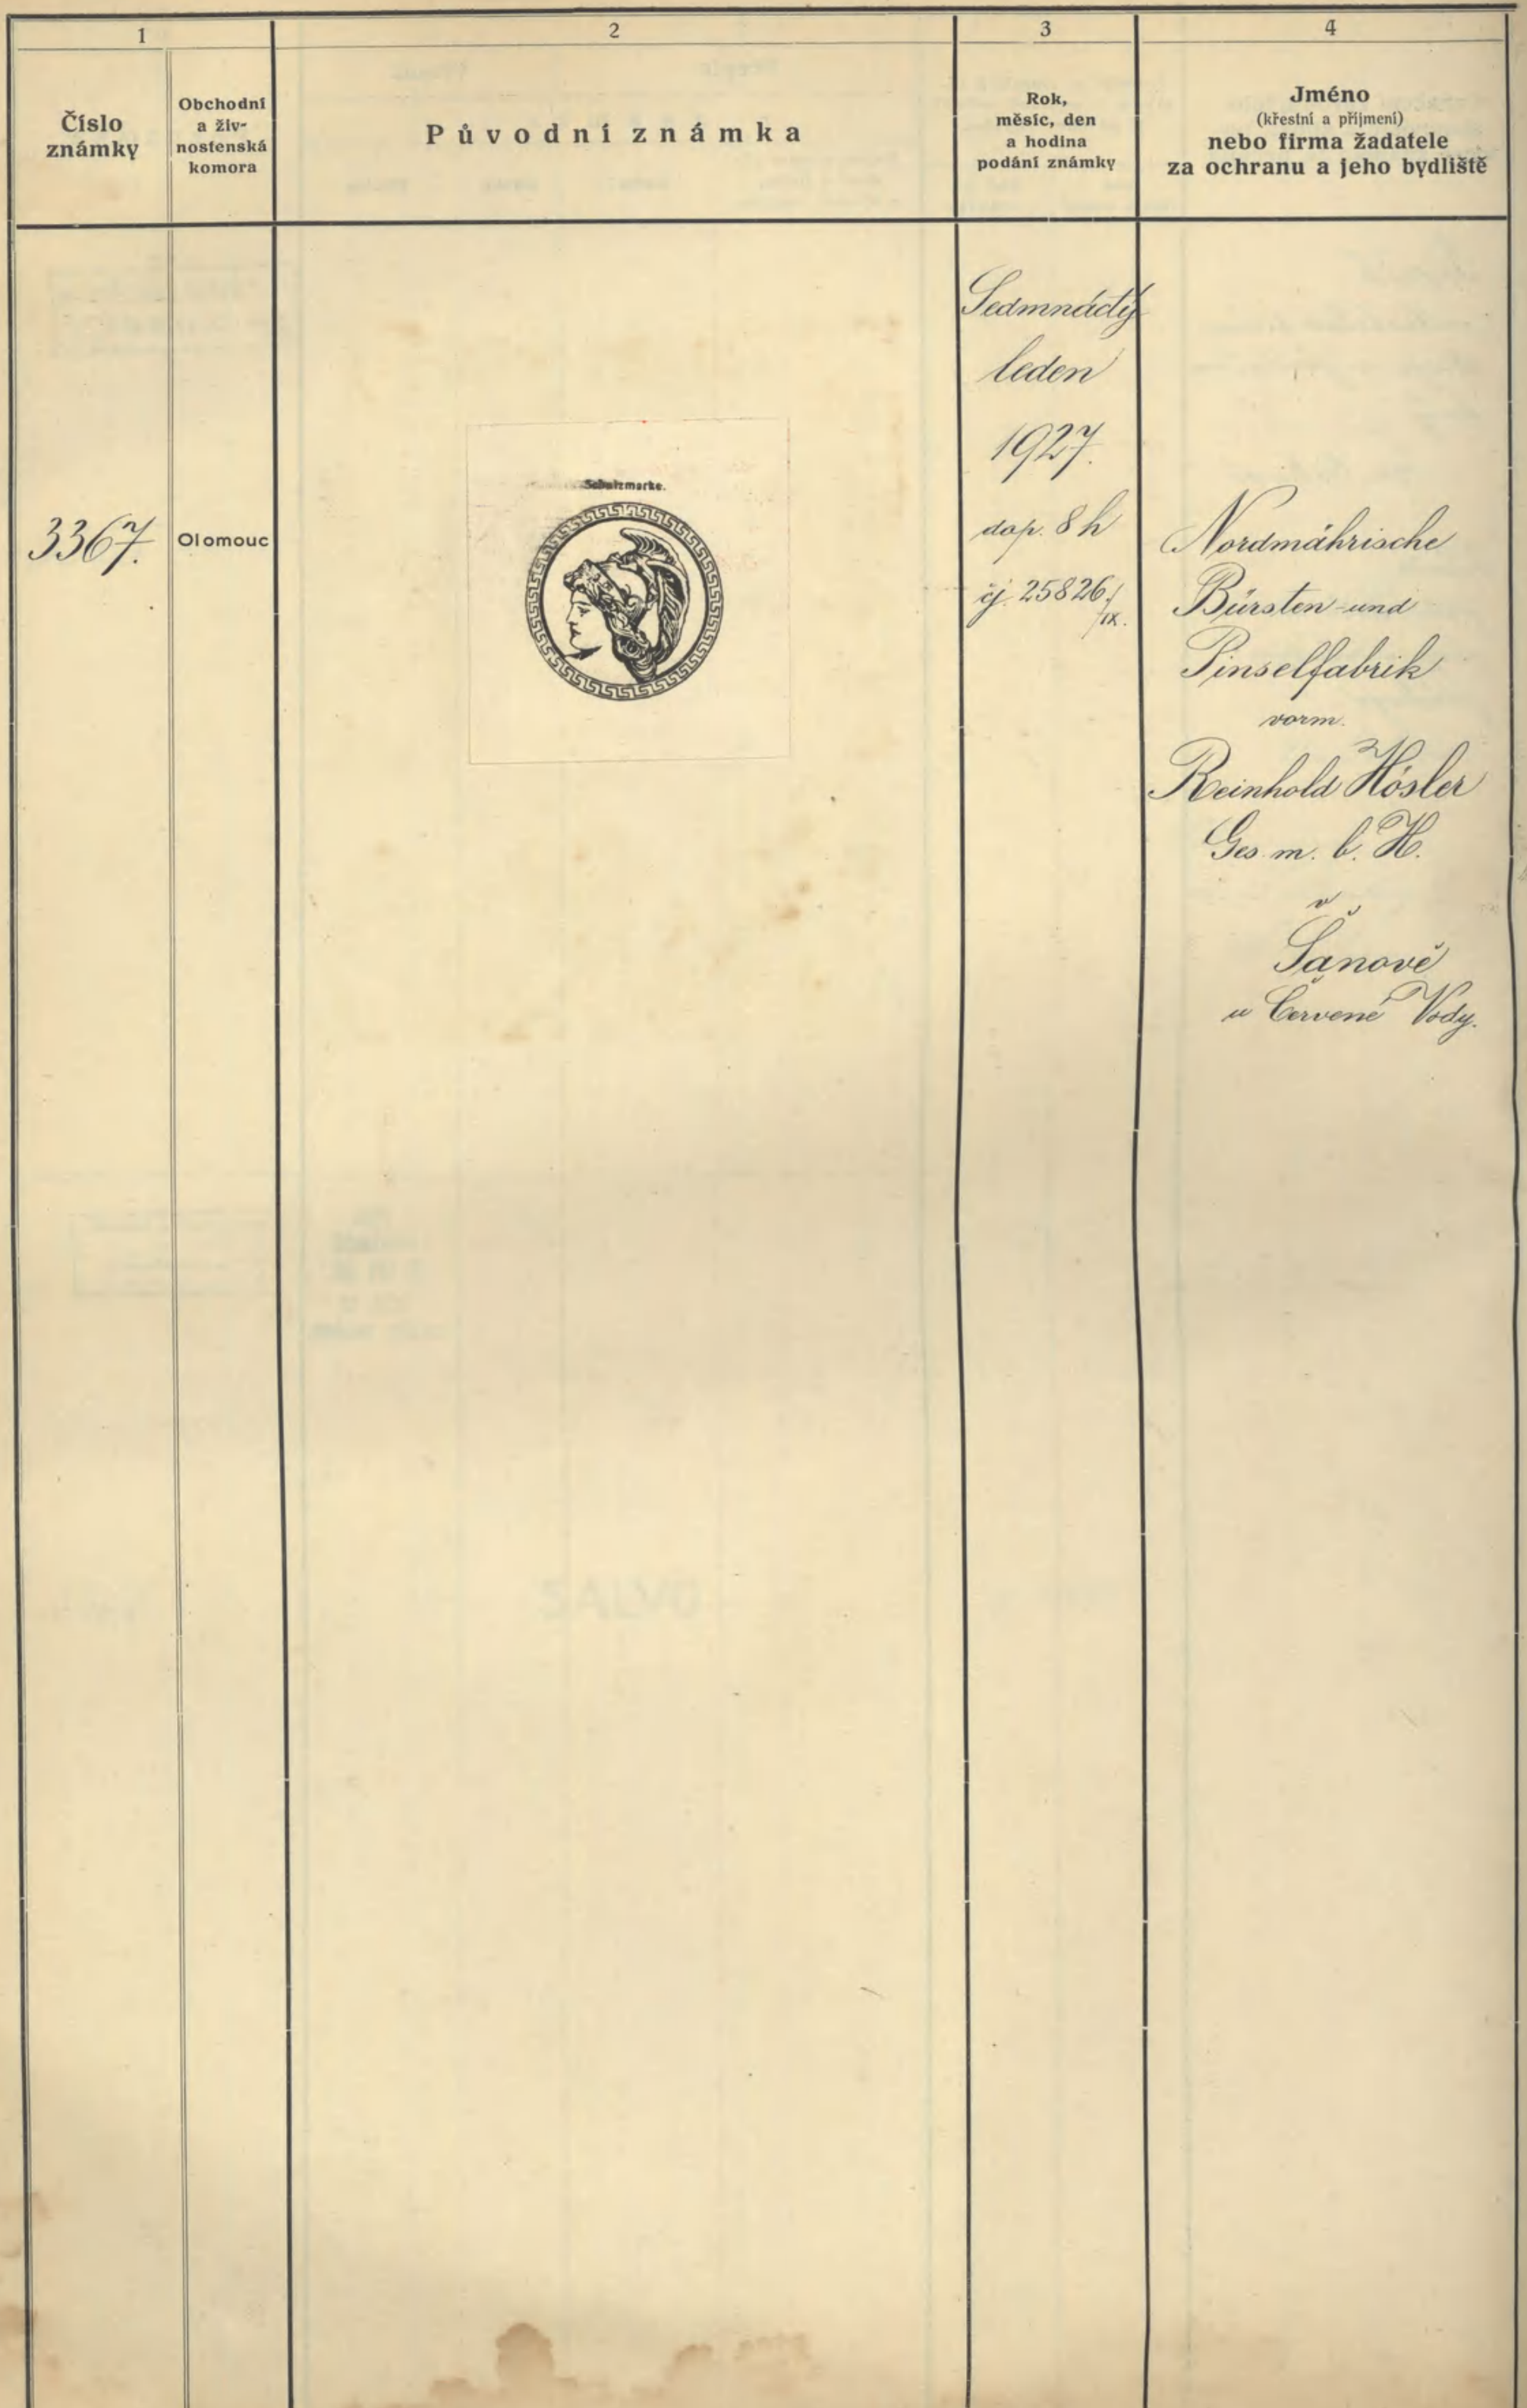 1
2
3
4
Číslo
známky
Obchodní
a živ-
nostenská
komora
Původní známka
Rok,
měsíc, den
a hodina
podání známky
Jméno
(křestní a příjmení)
nebo firma žadatele
za ochranu a jeho bydliště
3367.
Olomouc
Schutzmarke.
Sedmnáctý
leden
1927.
dop. 8 h
čj. 25826/
IX.
Nordmährische
Bürsten- und
Pinselfabrik
vorm.
Reinhold Hösler
Ges. m. b. H.
v
Šanově
u Červené Vody.
SALVO